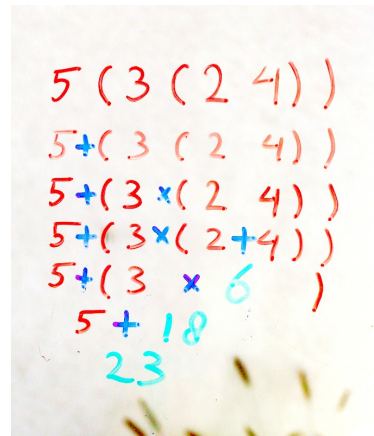 5 ( 3 ( 2 4 ) )
5 + ( 3 ( 2 4 ) )
5 + ( 3 × ( 2 4 ) )
5 + ( 3 × ( 2 + 4 ) )
5 + ( 3 × 6 )
5 + 18
23